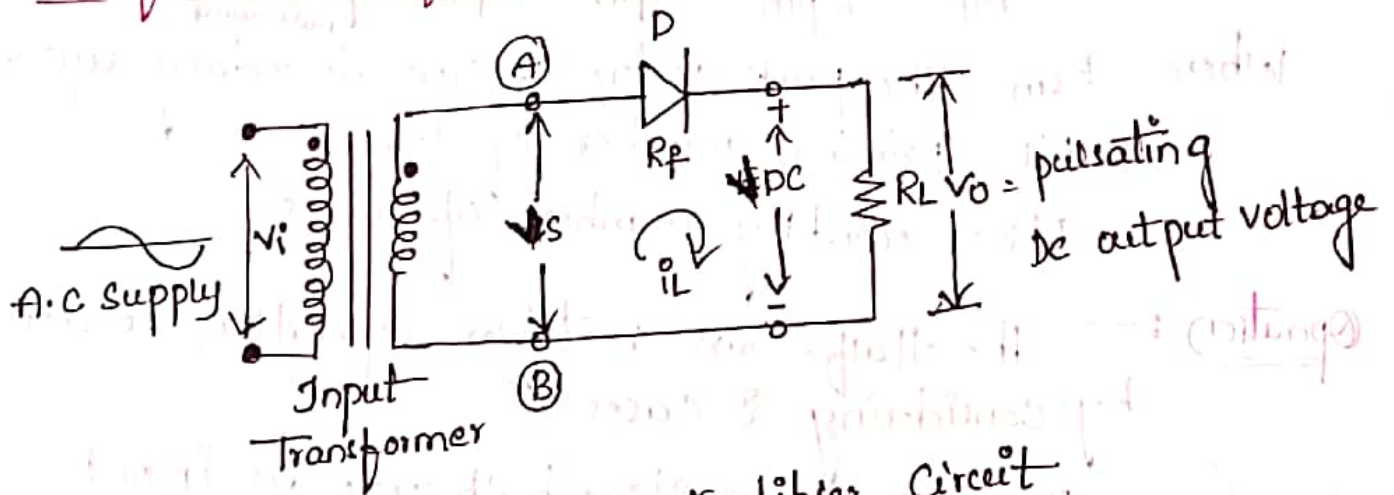 D
A
+
Rf
DC
RL
Vo = pulsating
DC output voltage
Vi
S
iL
A.C Supply
-
B
Input
Transformer
Circuit